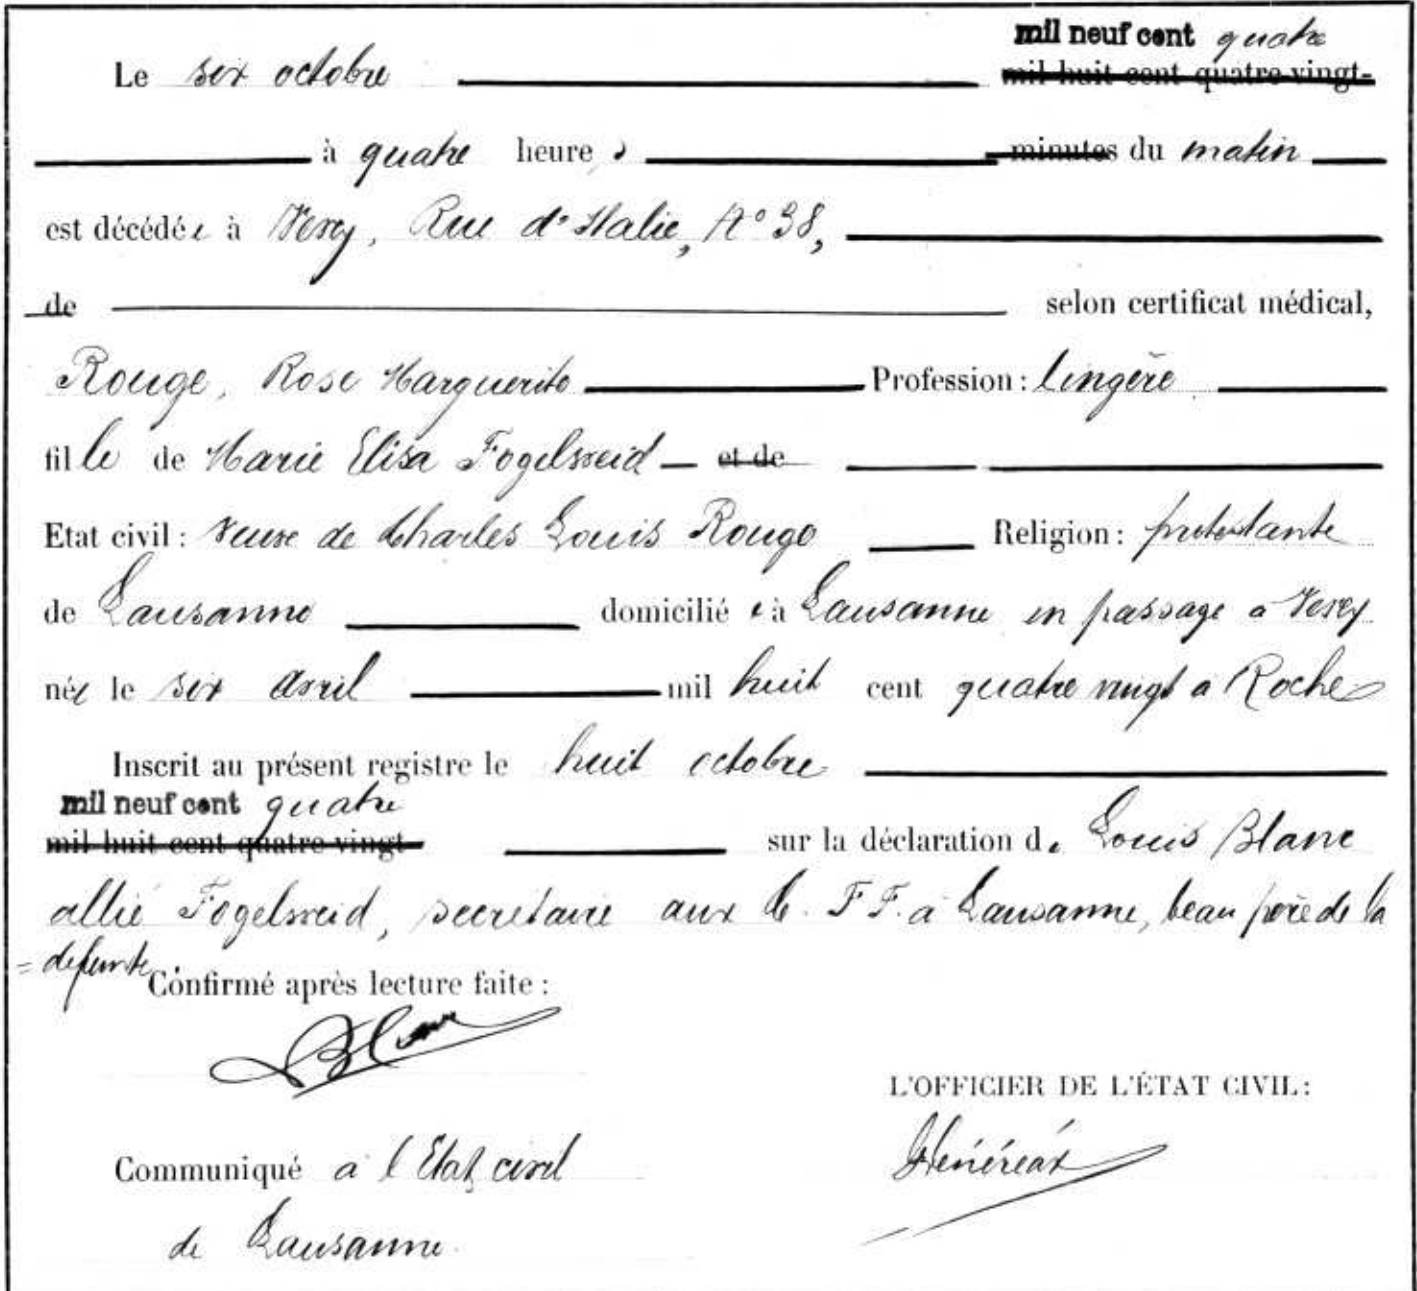 mil neuf cent quatre
Le six octobre mil huit cent quatre-vingt-
à quatre heures minutes du matin
est décédée à Vevey, Rue d'Italie, No 38,
de selon certificat médical,
Rouge, Rose Marguerite Profession : lingère
fille de Marie Elisa Fogelsweid et de
Etat civil : Veuve de Charles Louis Rouge Religion : protestante
de Lausanne domiciliée à Lausanne en passage à Vevey
née le six avril mil huit cent quatre vingt à Roche
Inscrit au présent registre le huit octobre
mil neuf cent quatre
mil huit cent quatre-vingt- sur la déclaration de Louis Blanc
allié Fogelsweid, secrétaire aux C. F. F. à Lausanne, beau père de la
= défunte.
Confirmé après lecture faite :
Blanc
L'OFFICIER DE L'ÉTAT CIVIL :
Communiqué à l'Etat civil
de Lausanne.